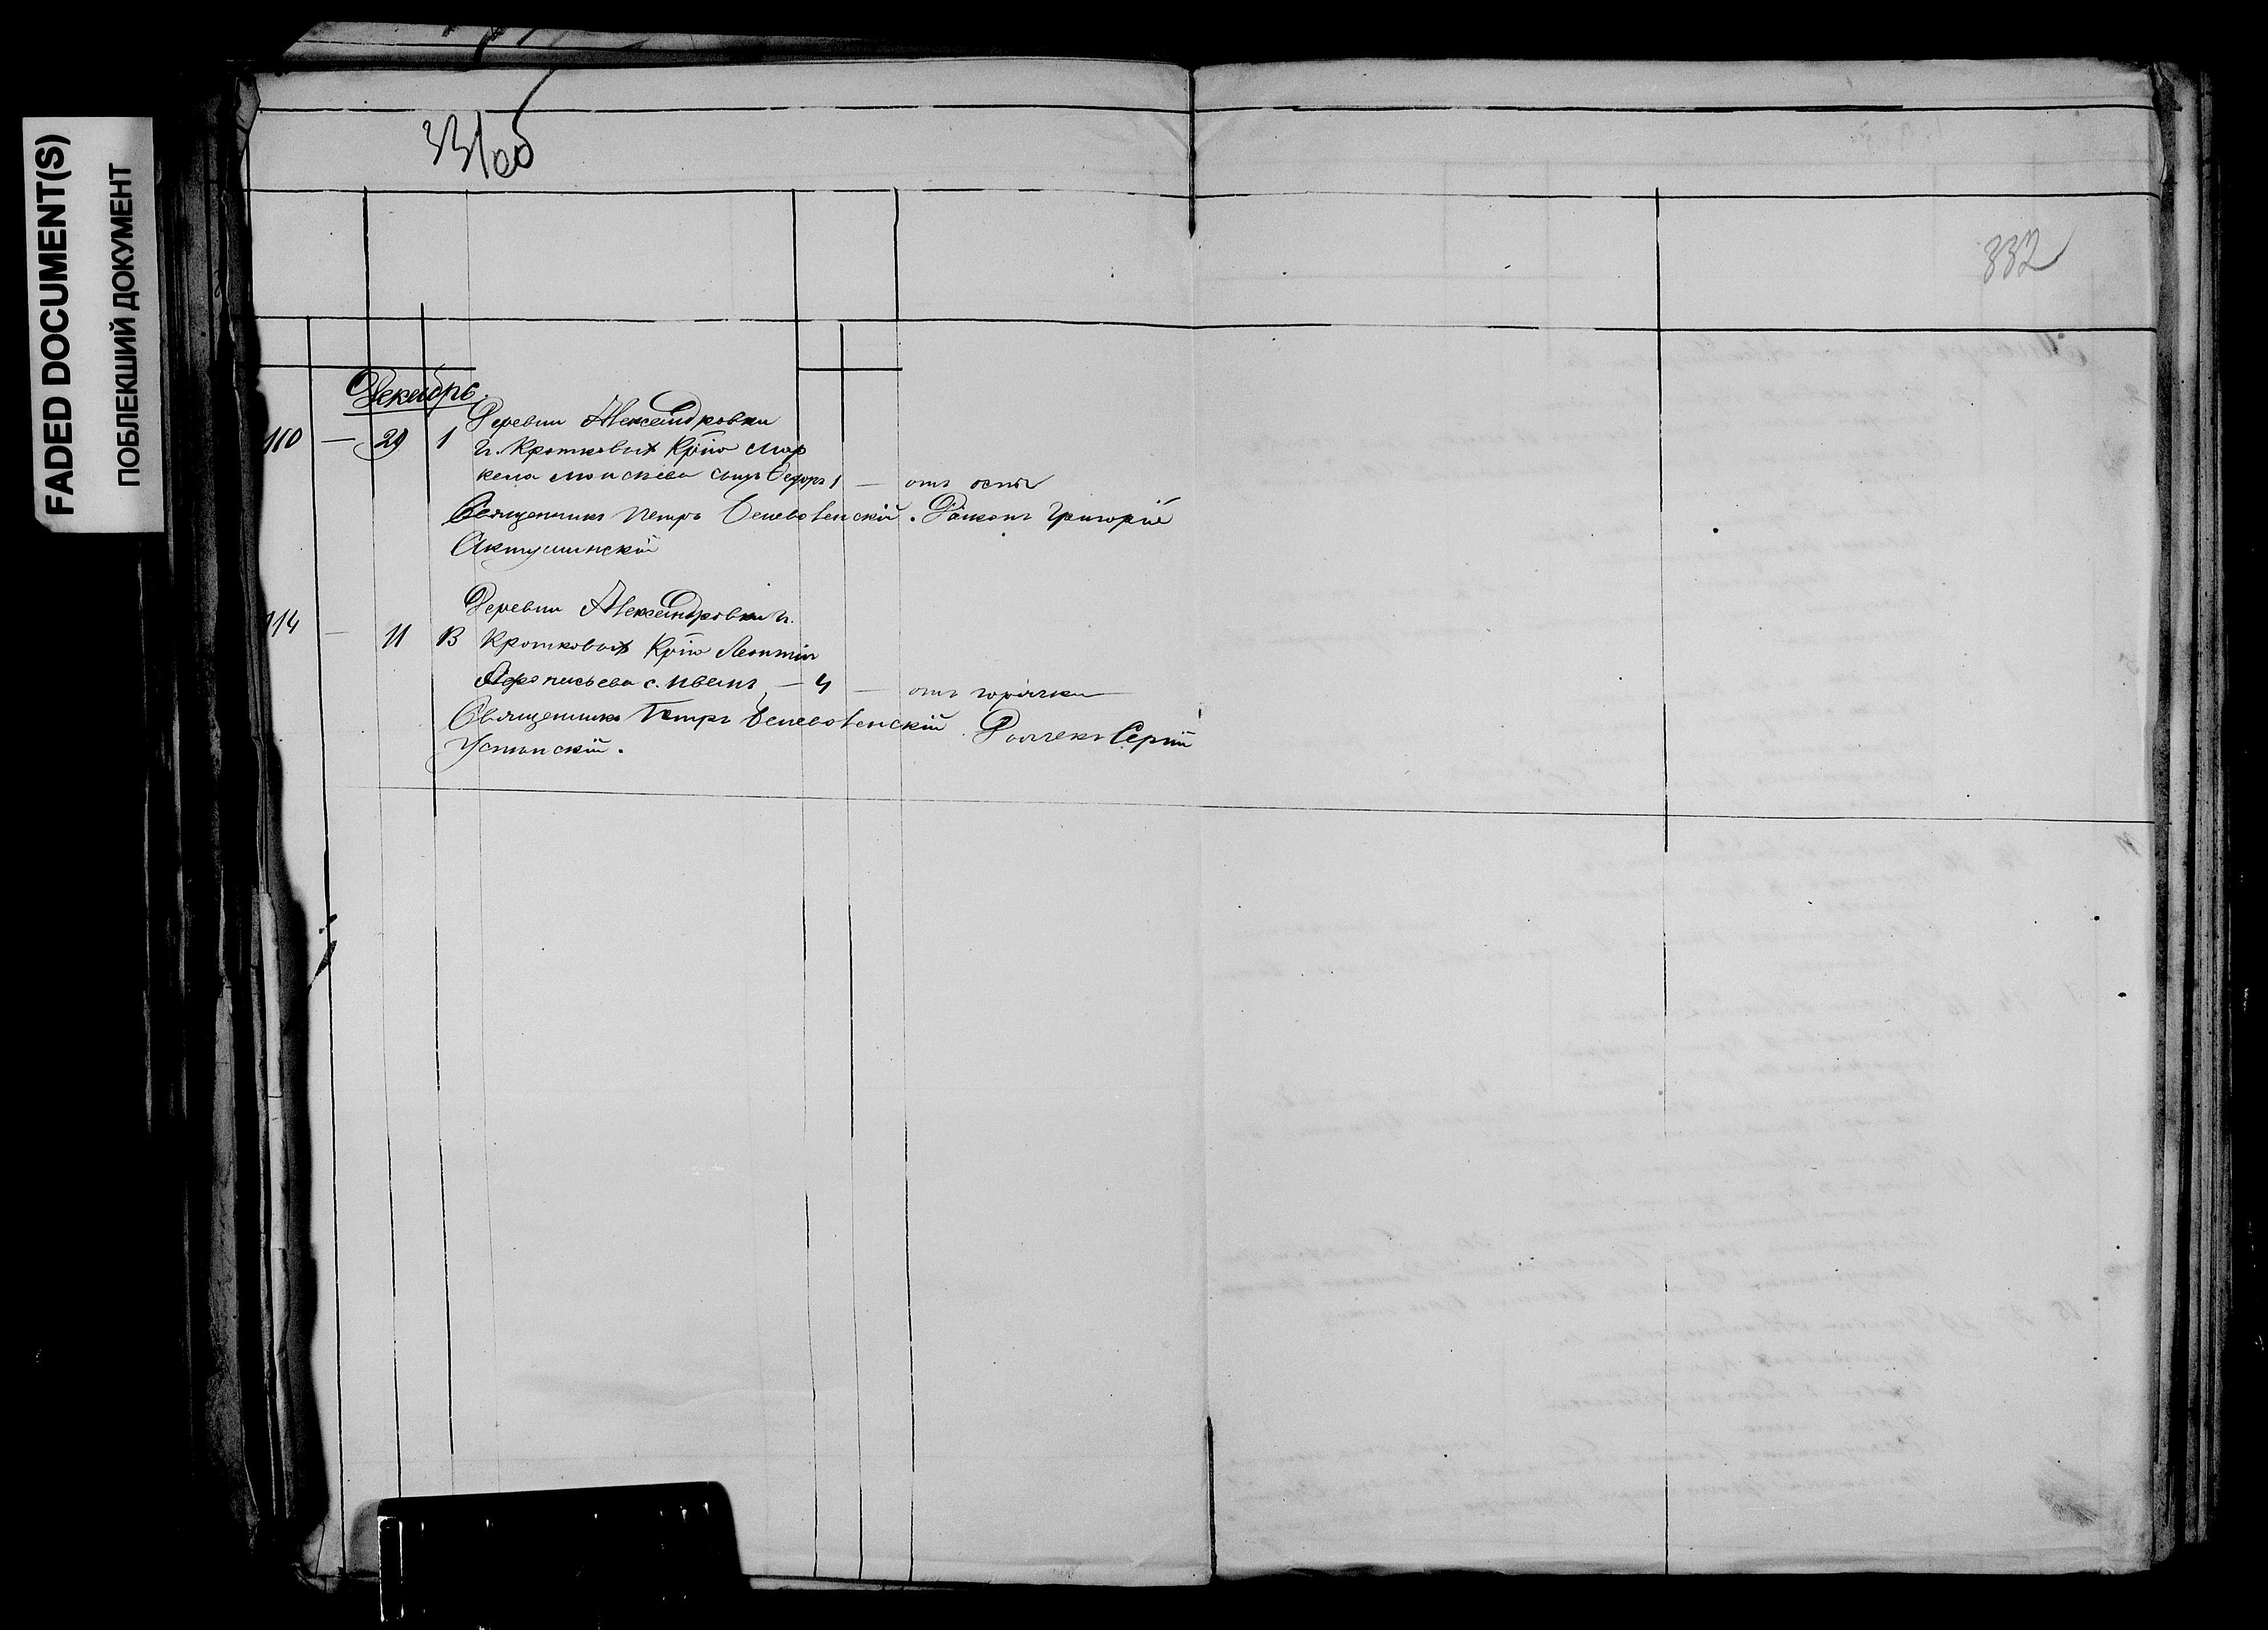 FADED DOCUMENT(S)
ПОБЛЕКШИЙ ДОКУМЕНТ
331об
332
Декабрь.
110 — 29 1 Деревни Александровки
г. Кротковых Кр͠на Мар
кела Моисѣева сынъ Ѳедоръ 1 — отъ оспы
Священникъ Петръ Діаконъ Григорій
Актушинскій
114 — 11 13 Деревни Александровки г.
Кротковых Кр͠на Леонтія
Афонасьева с. Иванъ — 4 — отъ горячки
Священникъ Петръ Дьячекъ Сергій
Успенскій.